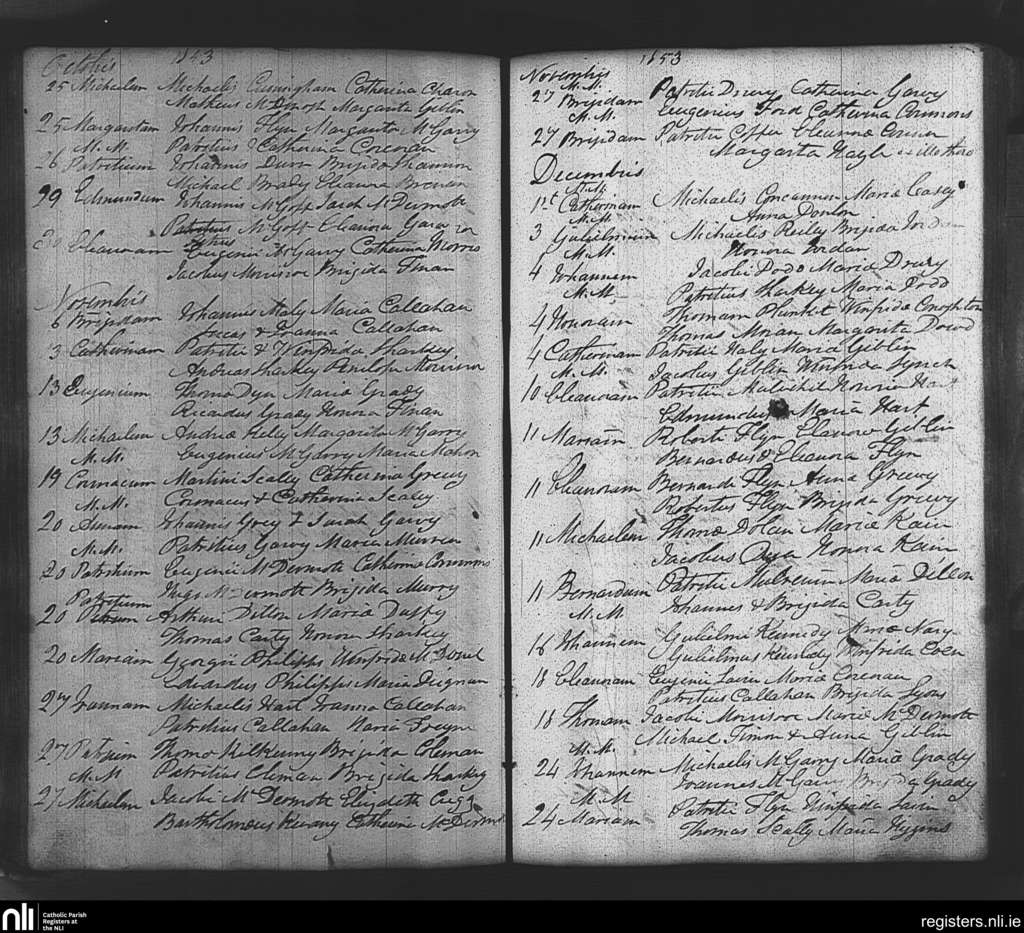 Octobris 1853
25 Michaelem Michaelis Cunningham Catherina Charon
Matheus McDonogh Margarita Giblin
25 Margaritam Johannis Flyn Margarita McGarry
M. M. Patritius & Catherina Corcoran
26 Patritium Johannis Dunn Brigida Shannon
Michael Brady Eleanora Brenan
29 Edmundum Johannis McGoff Sarah McDermott
Patritius McGoff Eleanora Gara
30 Eleanoram Eugenii McGarry Catherina Morris
Jacobus Morrison Brigida Finan
Novembris
6 Brigidam Johannis Haly Maria Callahan
Lucas & Joanna Callahan
3 Catherinam Patritii & Winifrida Sharkey
Andreas Sharkey Penelope Morrison
13 Eugenium Thoma Dyer Maria Grady
Ricardus Grady Honora Finan
13 Michaelem Andrea Kelly Margarita McGarry
M. M. Eugenius McGarry Maria Mahon
19 Cormacum Martini Scaley Catherina Grevy
M. M. Cormacus & Catherina Scaley
20 Annam Johannis Grey & Sarah Garvy
M. M. Patritius Garvy Maria Murren
20 Patritium Eugenii McDermott Catherina Commons
Hugo McDermott Brigida Murry
Patritium
20 Arthuri Dillon Maria Duffy
Thomas Carty Honora Sharkey
20 Mariam Georgii Philipps Winifrida McDonel
Edvardus Philipps Maria Duignan
27 Joannam Michaelis Hart Joanna Callahan
Patritius Callahan Maria Freyne
27 Patrium Thoma Kilkenny Brigida Cleman
M. M. Patritius Cleman Brigida Sharkey
27 Michaelem Jacobi McDermott Elizabeth
Bartholomeus Catherina McDermott
1853
Novembris
27 M. M. Brigidam Patritii Drury Catherina Garvy
M. M. Eugenius Ford Catherina Commons
27 Brigidam Patritii Eleanora
Margarita
Decembris
M. M.
1st Catherinam Michaelis Concannon Maria Casey
M. M. Anna Donlon
3 Gulielmum Michaelis Reily Brigida Jordan
M. M. Honora Jordan
4 Johannem Jacobi Dodd Maria Drury
M. M. Patritius Sharkey Maria Dodd
4 Honoram Thomam Plunket Winifrida Conoghton
Thomas Moran Margarita Dowd
4 Catherinam Patritii Haly Maria Giblin
M. M. Jacobus Giblin Winifrida Lynch
10 Eleanoram Patritii Mulvihil Honora Hart
Edmundus Maria Hart
11 Mariam Roberti Flyn Elanora Giblin
Bernardus & Eleanora Flyn
11 Eleanoram Bernardi Flyn Anna Grevy
Robertus Flyn Brigida Grevy
11 Michaelem Thoma Dolan Maria Kain
Jacobus Honora Kain
11 Bernardum Patritii Mulrenin Maria Dillon
M. M. Johannes & Brigida Carty
16 Johannem Gulielmi Kennedy Anna Nary
Gulielmus Kennedy Winifrida Coen
18 Eleanoram Eugenii Lavin Maria Corcoran
Patritius Callahan Brigida Lyons
18 Thomam Jacobi Morrison Maria McDermott
M. M. Michael Timon & Anna Giblin
24 Johannem Michaelis McGarry Maria Grady
M. M. Joannes McGarry Brigida Grady
24 Mariam Patritii Flyn Winifrida Lavin
Thomas Scally Maria Higgins
nli
Catholic Parish
Registers at
the NLI
registers.nli.ie